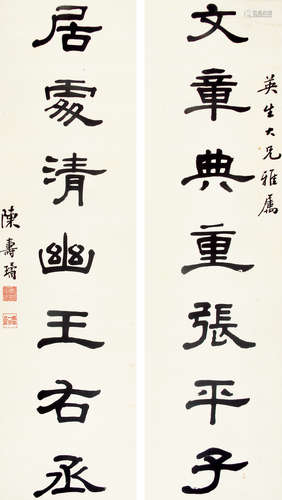 英生大兄雅屬
文章典重張平子
居處清幽王右丞
陳壽璿